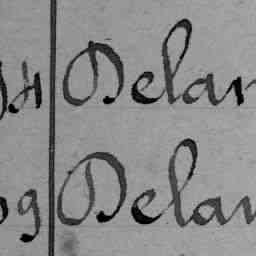 4 Delan
9 Delan